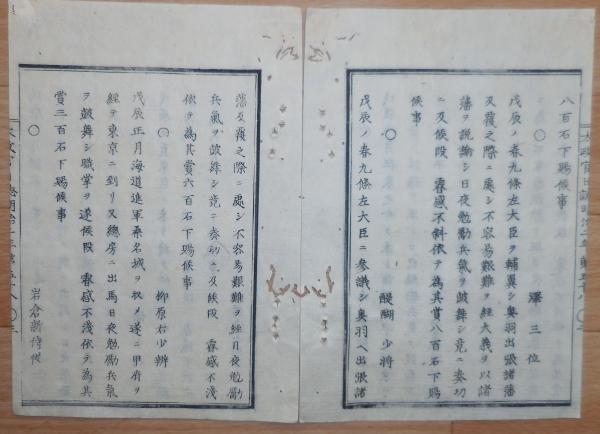 八百石下賜候事
○
澤三位
戊辰ノ春九條左大臣ヲ輔翼シ奥羽出張諸藩
反覆之際ニ處シ不容易艱難ヲ經大義ヲ以諸
藩ヲ説諭シ日夜勉勵兵氣ヲ鼓舞シ竟ニ奏功
ニ及候段 叡感不斜依テ為其賞八百石下賜
候事
○
醍醐少將
戊辰ノ春九條左大臣ニ參議シ奥羽ヘ出張諸
藩反覆之際ニ處シ不容易艱難ヲ經日夜勉勵
兵氣ヲ鼓舞シ竟ニ奏功ニ及候段 叡感不淺
依テ為其賞六百石下賜候事
○
柳原右少辨
戊辰正月海道進軍桑名城ヲ收メ遂ニ甲府ヲ
經テ東京ニ到リ又總房ニ出馬日夜勉勵兵氣
ヲ鼓舞シ職掌ヲ遂候段 叡感不淺依テ為其
賞三百石下賜候事
○
岩倉新侍從